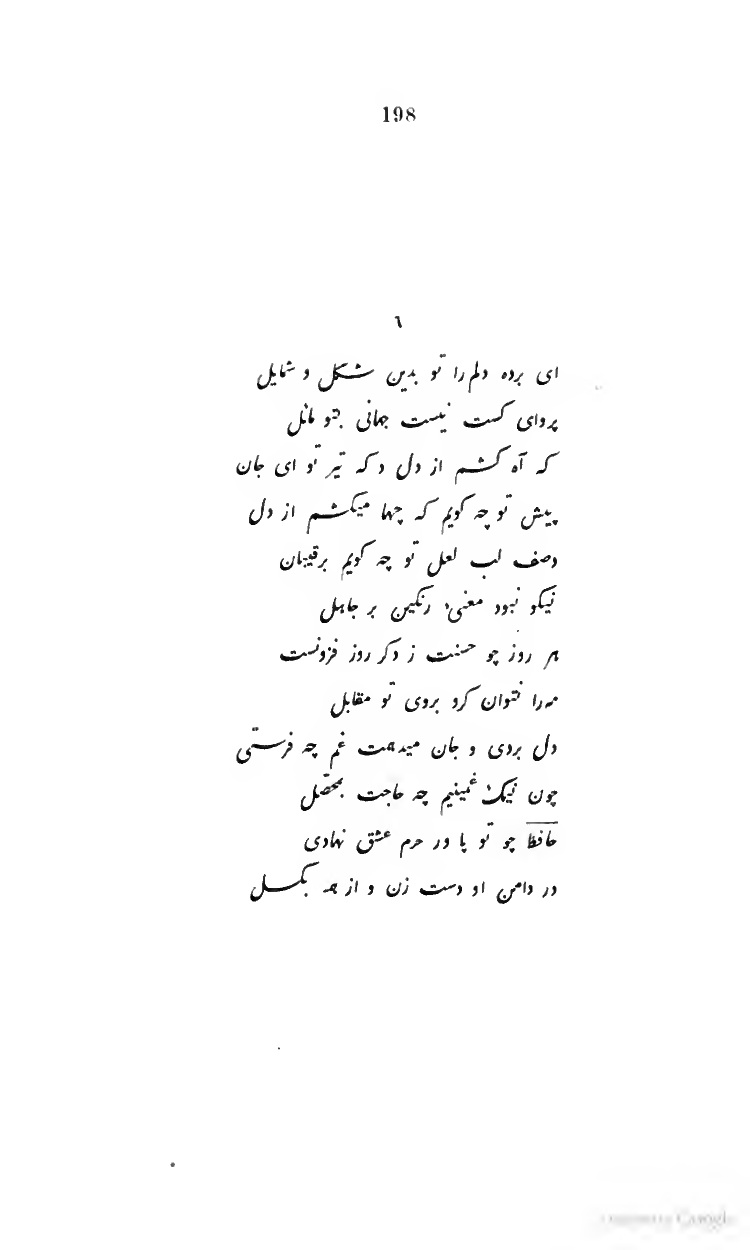 198
٦
ای برده دلم را تو بدین شکل و شمایل
پروای کست نیست جهانی بتو مائل
که آه کشم از دل و که تیر تو ای جان
پیش تو چه کویم که چها میکشم از دل
وصف لب لعل تو چه کویم برقیبان
نیکو نبود معنیء رنکین بر جاهل
هر روز چو حسنت ز دکر روز فزونست
مه را نتوان کرد بروی تو مقابل
دل بردی و جان میدهمت غم چه فرستی
چون نیک غمینیم چه حاجت بمحصّل
حافظ چو تو پا در حرم عشق نهادی
در دامن او دست زن و از همه بکسل
Google